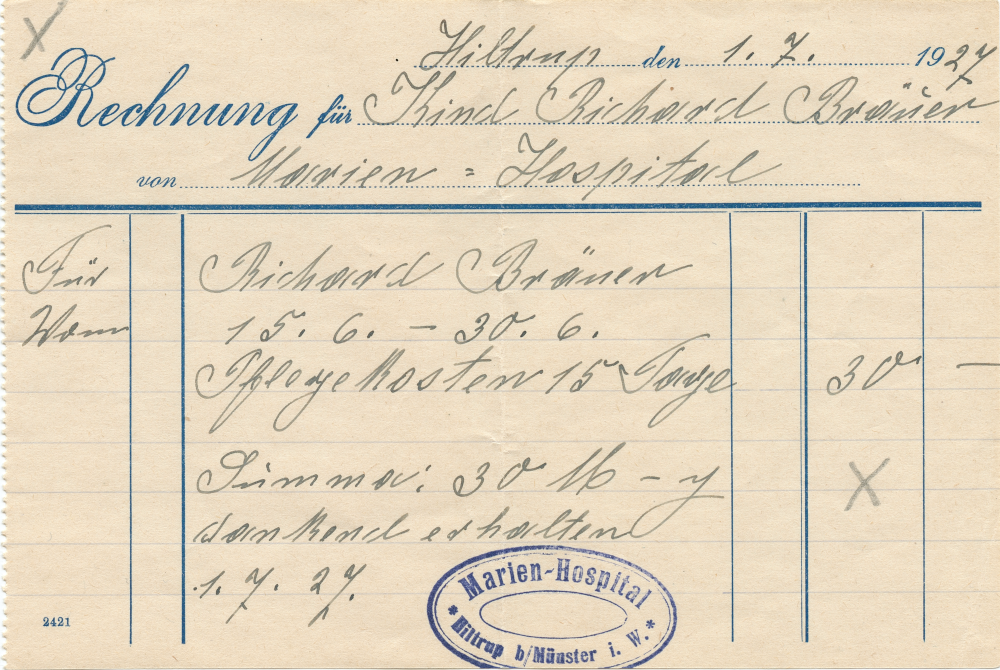 Hiltrup den 1. 7. 1927
Rechnung für Kind Richard Bräuer
von Marien = Hospital
Für Richard Bräuer
Vom 15. 6. – 30. 6.
Pflegekosten 15 Tage 30 —
Summa: 30 M – ₰
dankend erhalten
1. 7. 27.
Marien-Hospital
* Hiltrup b/Münster i. W. *
2421